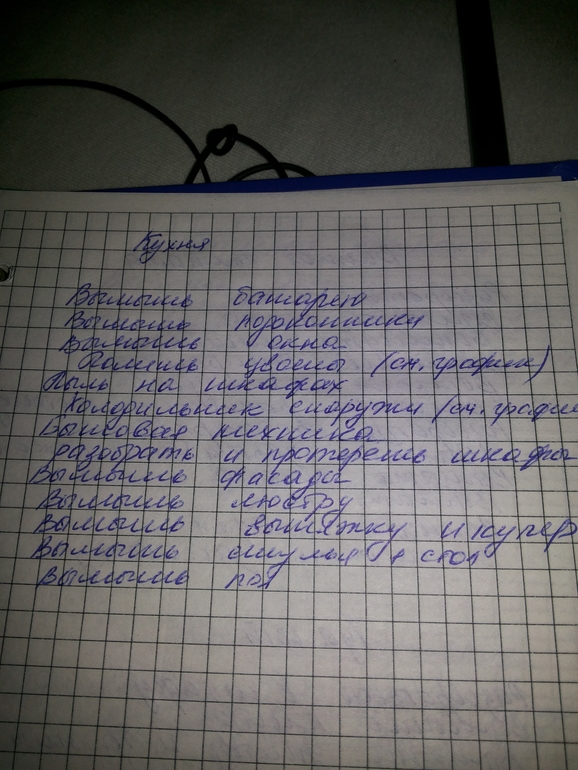 Кухня
Вымыть батарею
Вымыть подоконники
Вымыть окна
Полить цветы (см. график)
Пыль на шкафах
Холодильник снаружи (см. график
Бытовая техника
разобрать и протереть шкафы
Вымыть фасады
Вымыть люстру
Вымыть вытяжку и
Вымыть стулья и стол
Вымыть пол